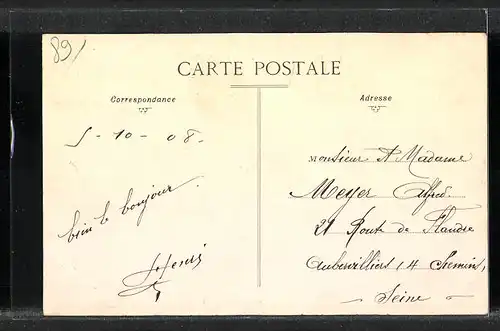 89/
CARTE POSTALE
Correspondance
Adresse
5-10-08.
bien le bonjour.
Monsieur et Madame
Meyer Alfred.
21 Rout de Flandre
Aubervilliers 4 Chemins,
- Seine -